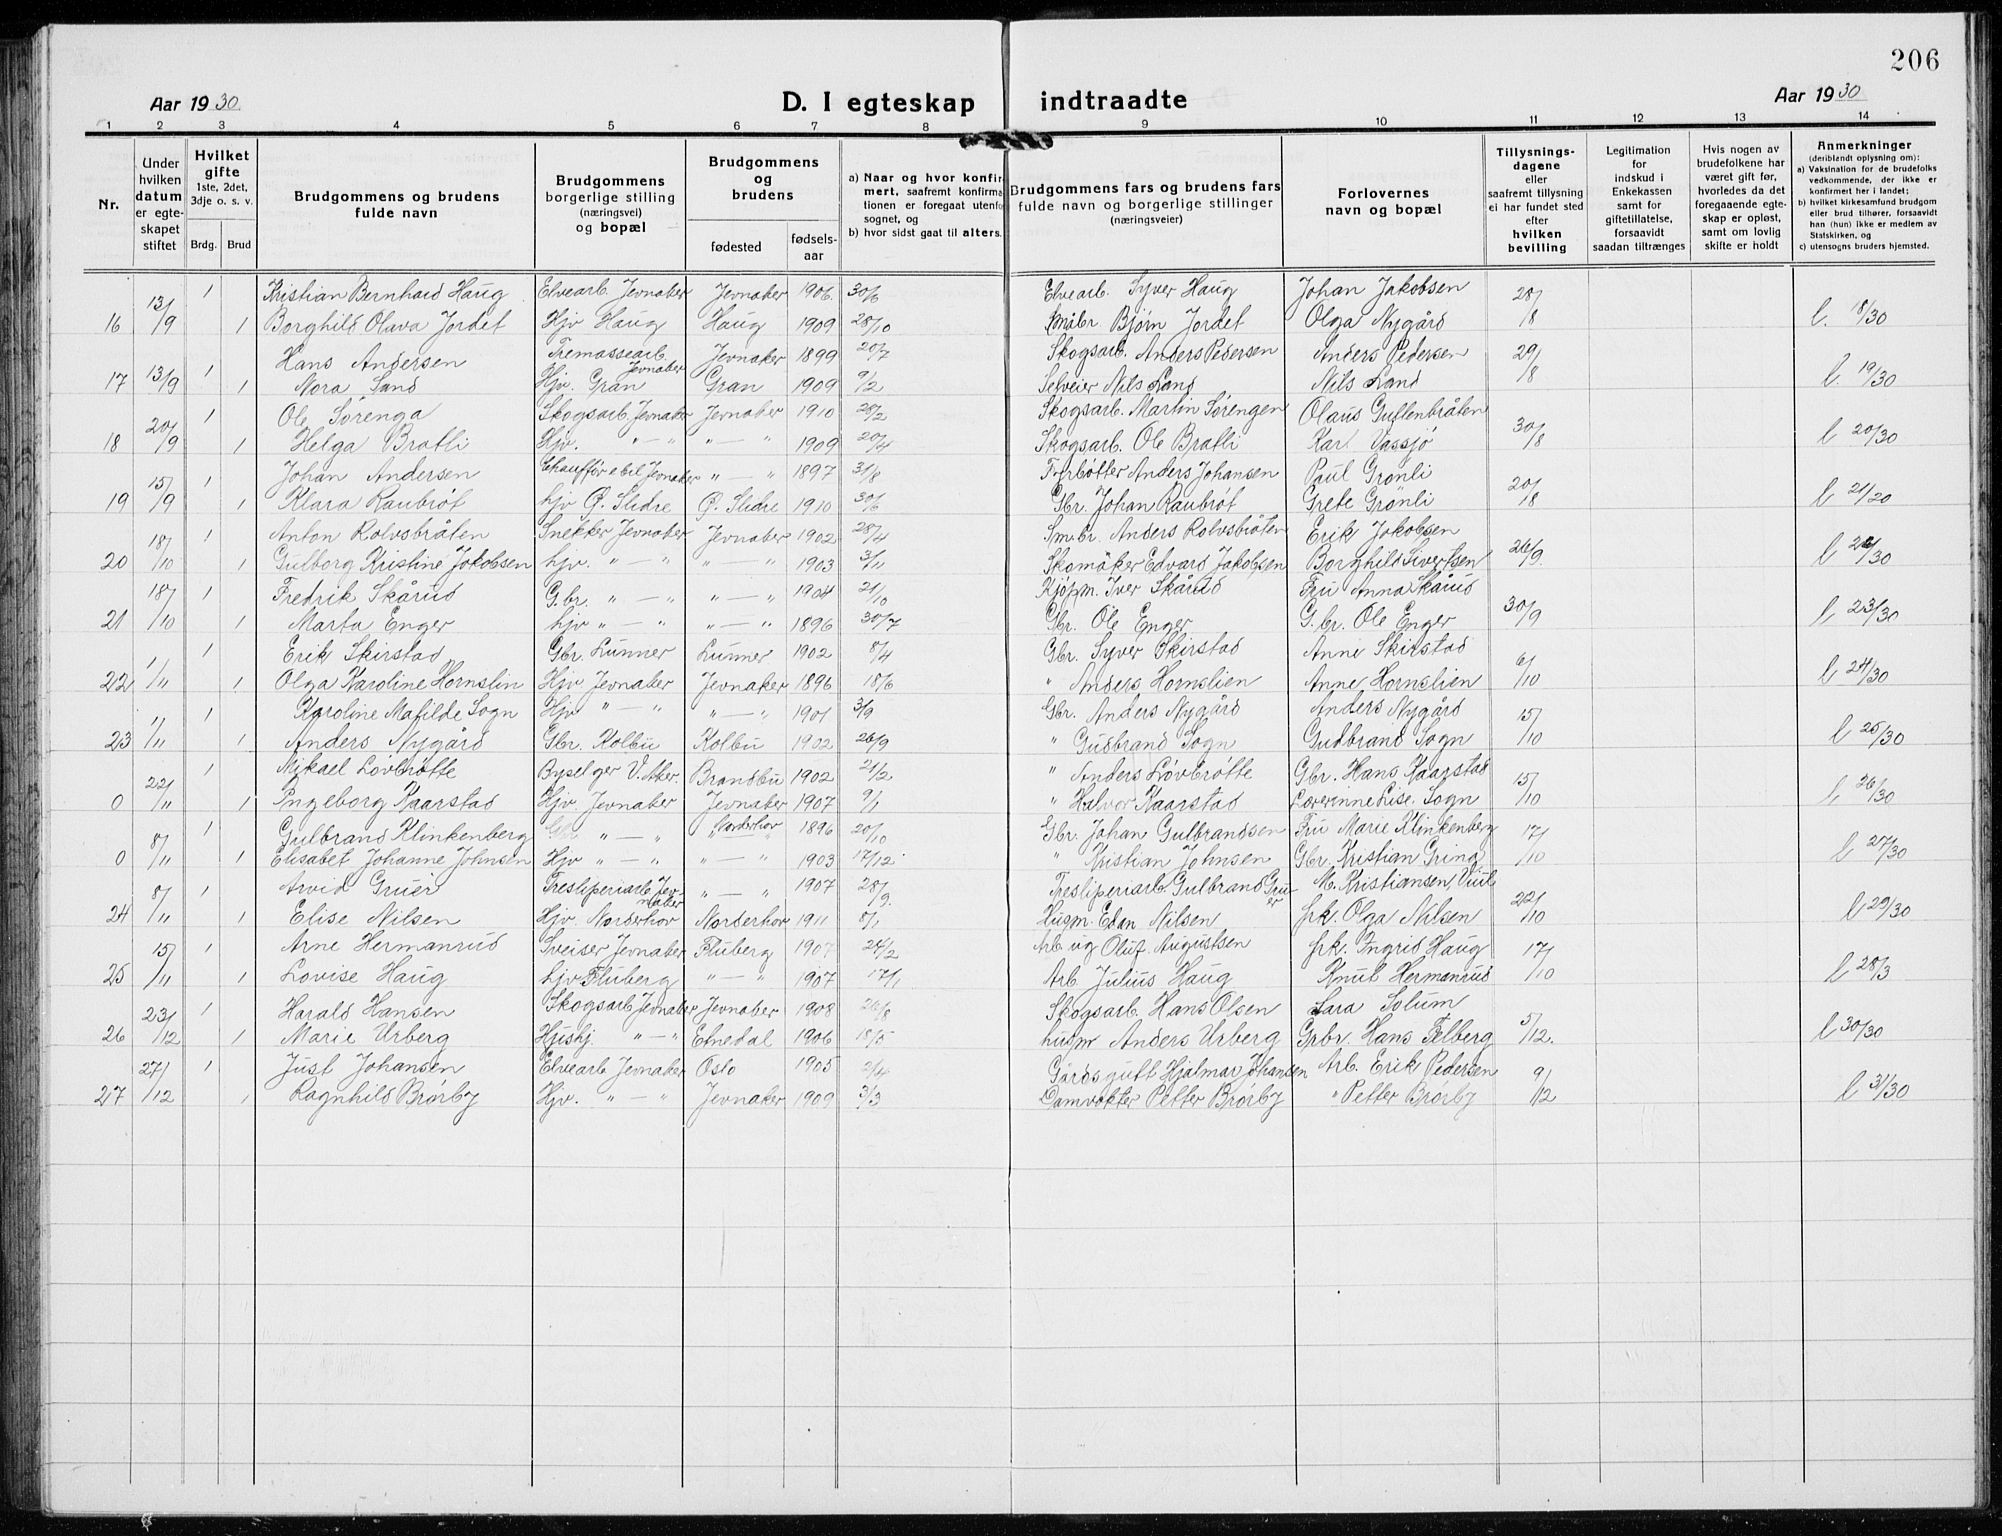 206
Aar 1930.
D. I egteskap
indtraadte
Aar 1930
1 2 3 4 5 6 7 8 9 10 11 12 13 14
Nr.
Under hvilken datum er egteskapet stiftet
Hvilket gifte 1ste, 2det, 3dje o. s. v.
Brdg. Brud
Brudgommens og brudens fulde navn
Brudgommens borgerlige stilling (næringsvei) og bopæl
Brudgommens og brudens
fødested fødselsaar
a) Naar og hvor konfirmert, saafremt konfirmationen er foregaat utenfor sognet, og
b) hvor sidst gaat til alters.
Brudgommens fars og brudens fars fulde navn og borgerlige stillinger (næringsveier)
Forlovernes navn og bopæl
Tillysningsdagene eller saafremt tillysning ei har fundet sted efter hvilken bevilling
Legitimation for indskud i Enkekassen samt for giftetillatelse, forsaavidt saadan tiltrænges
Hvis nogen av brudefolkene har været gift før, hvorledes da det foregaaende egteskap er opløst, samt om lovlig skifte er holdt
Anmerkninger (deriblandt oplysning om):
a) Vaksination for de brudefolks vedkommende, der ikke er konfirmert her i landet;
b) hvilket kirkesamfund brudgom eller brud tilhører, forsaavidt han (hun) ikke er medlem av Statskirken, og
c) utensogns bruders hjemsted.
13/9 1 Kristian Bernhard Haug Elvearb. Jevnaker Jevnaker 1906 30/6 Elvearb. Syver Haug Johan Jakobsen 28/8
16 1 Borghild Olava Jordet Hjv Haug Haug 1909 28/10 Småbr Bjørn Jordet Olga Nygård l. 18/30
13/9 1 Hans Andersen Tremassearb. Jevnaker Jevnaker 1899 20/7 Skogsarb. Anders Pedersen Anders Pedersen 29/8
17 1 Nora Land Hjv. Gran Gran 1909 9/2 Selveier Nils Land Nils Land l. 19/30
20/9 1 Ole Sørenga Skogsarb. Jevnaker Jevnaker 1910 28/2 Skogsarb. Martin Sørengen Olaus Gullenbråten 30/8
18 1 Helga Bratli Hjv. " — " " — " 1909 20/4 Skogsarb. Ole Bratli Karl Vassjø l 20/30
15/9 1 Johan Andersen Chauffør e bil Jevnaker " — " 1897 31/8 Anders Johansen Paul Grønli 20/8
19 1 Klara Raubrøt hjv Ø. Slidre Ø. Slidre 1910 30/6 Gbr. Johan Raubrøt Grete Grønli l 21/20
18/10 1 Anton Rolvsbråten Snekker Jevnaker Jevnaker 1902 28/4 Sm.br. Anders Rolvsbråten Erik Jakobsen 26/9.
20 1 Gulborg Kristine Jakobsen hjv. " — " " — " 1903 3/11 Skomaker Edvard Jakobsen Borghild Sivertsen
18/10 1 Fredrik Skårud G.br. " — " " — " 1904 21/10 Kjøpm. Iver Skårud Fru Anna Skårud 30/9
21 1 Marta Enger hjv " — " " — " 1896 30/7 Gbr. Ole Enger G.br. Ole Enger l 23/30
1/11 1 Erik Skirstad Gbr. Lunner Lunner 1902 8/4 Gbr. Syver Skirstad Anne Skirstad 6/10
22 1 Olga Karoline Hornslin Hjv Jevnaker Jevnaker 1896 18/6 " Anders Hornslien Anne Hornslien l 24/30
1/11 1 Karoline Matilde Sogn Hjv " — " " — " 1901 3/9 Gbr. Anders Nygård Anders Nygård 15/10
23 1 Anders Nygård Gbr. Kolbu Kolbu 1902 26/9 " Gudbrand Sogn Gudbrand Sogn l 25/30
22/11 1 Mikael Løvbrøtte Byselger V. Aker. Brandbu 1902 21/2 " Anders Løvbrøtte Gbr. Hans Kaarstad 15/10
0 1 Ingeborg Kaarstad Hjv Jevnaker Jevnaker 1907 9/1 " Halvor Kaarstad Lærerinne Lise Sogn l 26/30
8/11 1 Gulbrand Klinkenberg " — " Norderhov 1896 20/10 Gbr. Johan Gulbrandsen Fru Marie Klinkenberg 17/10
0 1 Elisabet Johanne Johnsen Hjv " — " " — " 1903 17/12 " Kristian Johnsen Gbr. Kristian Grina l 27/30
8/11 1 Arvid Gruer Tresliperiarb. Jevnaker " — " 1907 28/9. Tresliperiarb. Gulbrand Gruer M. Kristiansen, 22/10
24 1 Elise Nilsen Hjv. Norderhov Norderhov 1911 8/1 Husm. Edan Nilsen frk. Olga Nilsen l 29/30
15/11 1 Arne Hermanrud Sveiser Jevnaker Fluberg 1907 24/2 Oluf Augustsen frk. Ingrid Haug 17/10
25 1 Lovise Haug hjv Fluberg " — " 1907 17/1 Arb. Julius Haug Knut Hermanrud l 28/3
23/12 1 Harald Hansen Skogsarb Jevnaker Jevnaker 1908 26/8 Skogsarb. Hans Olsen Sara Solum 5/12.
26 1 Marie Urberg Hjv. " — " Etnedal 1906 18/5 husm Anders Urberg Hans Felberg l 30/30
27/12 1 Just Johansen Elvearb Jevnaker Oslo 1905 2/4 Gårdsgutt Hjalmar Johansen Arb. Erik Pedersen 9/12
27 1 Ragnhild Brørby Hjv. " — " Jevnaker 1909 3/3 Damvokter Petter Brørby " Petter Brørby l 31/30